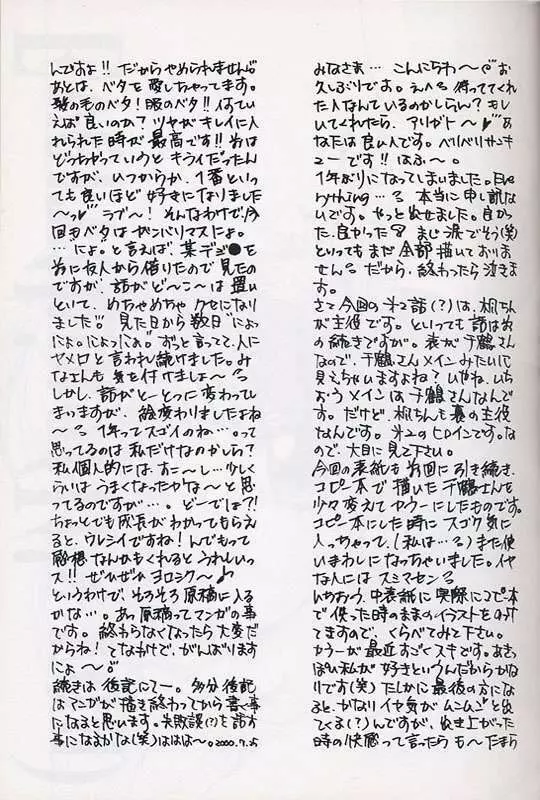 みなさま… こんにちわ〜 お
久しぶりです。え、待っててくれ
た人なんているのかしらん? もし
いてくれたら、アリガト〜♥ あ
なたは良い人です。ベリベリサンキ
ューです!! はふ〜。
1年ぶりになってしまいました。Eve
rything…。本当に申し訳な
いです。やっと出せました。良かっ
た、良かった まじ涙でそう(笑)
といってもまだ全部描いておりま
せん だから、終わったら泣きま
す。
さて今回の第2話(?)は、梓ちん
が主役です。といっても話は前
の続きですが。表が千鶴さん
なので、千鶴さんメインみたいに
見えちゃいますよね? いやね、いち
おうメインは千鶴さんなんで
す。だけど、梓ちんも裏の主役
なんです。第2のヒロインです。な
ので、大目に見て下さい。
今回の表紙も前回に引き続き、
コピー本で描いた千鶴さんを
少々変えてカラーにしたものです。
コピー本にした時にスゴク気に
入っちゃって、(私は…)また使
いまわしになっちゃいました。イヤ
な人にはスミマセン
いちおう、中表紙に実際にコピー本
で使った時のままのイラストをのけ
てますので、くらべてみて下さい。
カラーが最近すごくスキです。あきっ
ぽい私が好きというんだからかな
りです(笑) たしかに最後の方にな
ると、かなりイヤ気がムンムンと出
てくる(?)んですが、出き上がった
時の快感って言ったらも〜たまら
んですよ!! だからやめられません
あとは、ベタを愛しちゃってます。
髪の毛のベタ! 服のベタ!! 何てい
えば良いのか? ツヤがキレイに入
れられた時が最高です!! 昔は
どっちかっていうとキライだったん
ですが、いつからか、1番といっ
ても良いほど好きになりました
〜っ♥ ラブ〜! そんなわけで、今
回もベタはガンバリマスにょ。
…“にょ。”と言えば、某デジ●を
前に友人から借りたので見たの
ですが、話がど〜こ〜は置い
といて、めちゃめちゃクセになり
ました!! 見た日から数日“にょっ
にょ。にょっにょ。”ずっと言ってて、人に
ヤメロと言われ続けました。み
なさんも気を付けましょ〜
しかし、話がとーとつに変わってし
まいますが、絵変わりましたよね
〜 1年ってスゴイのね…。って
思ってるのは私だけなのかしら?
私個人的には、すこ〜し…少しく
らいはうまくなったかな〜と思
ってるのですが…。どーでしょ?!
ちょっとでも成長がわかってもらえ
ると、ウレシイですね! んでもって
感想なんかもくれるとうれしいっ
ス!! ぜひぜひヨロシク〜♪
というわけで、そろそろ原稿に入る
かな…。あっ原稿ってマンガの事
です。終わらなくなったら大変だ
からね! てなわけで、がんばります
にょ〜
続きは後記にてー。多分後記
はマンガが描き終わってから書く事
になると思います。失敗談(?)も話す
事になるかな(笑)ははは〜。2000.7.25